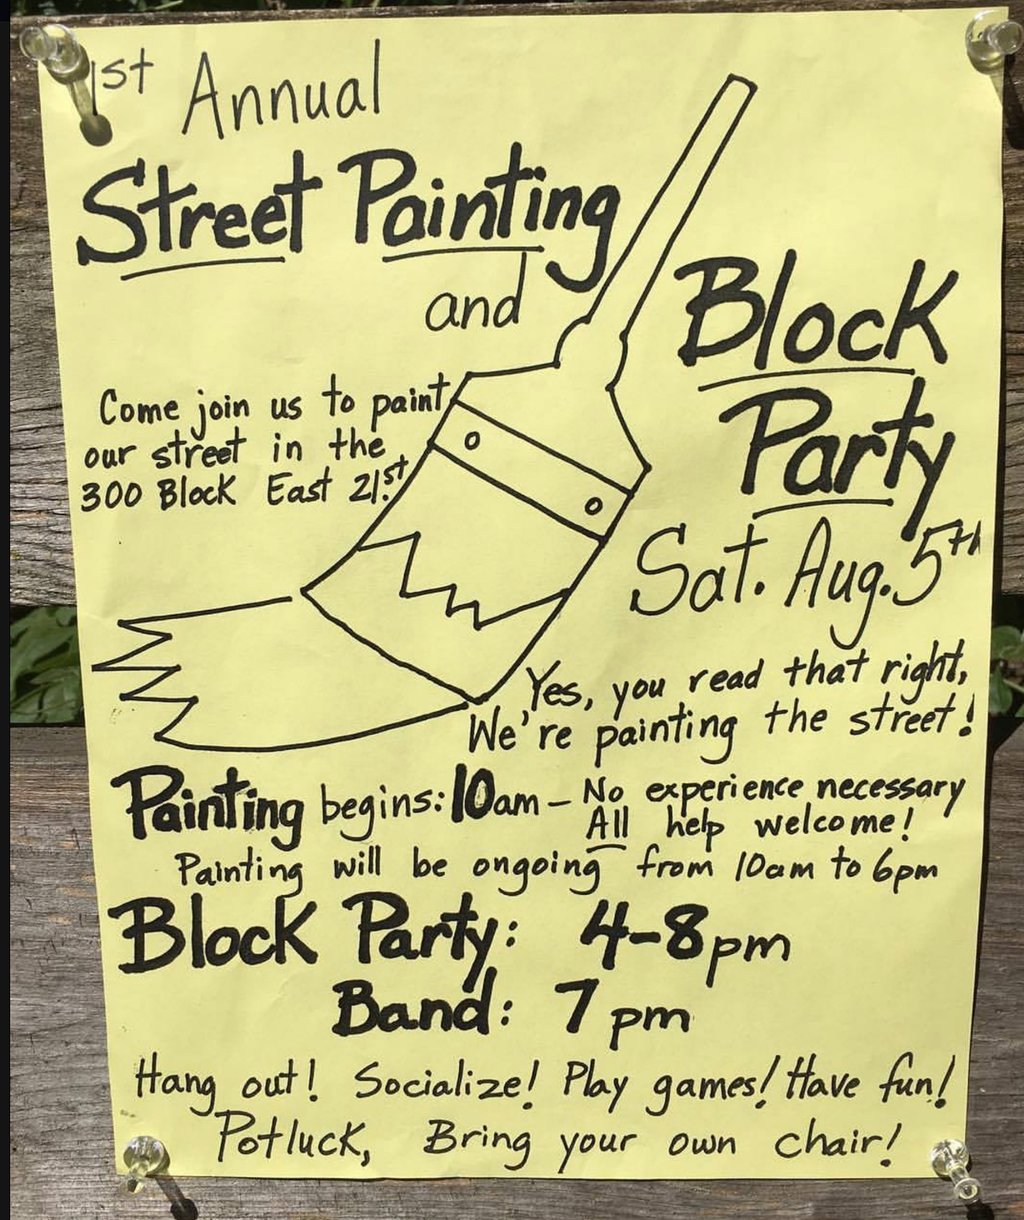 1st Annual
Street Painting
and
Block
Party
Come join us to paint
our street in the
300 Block East 21st.
Sat. Aug. 5th
Yes, you read that right,
We're painting the street!
Painting begins: 10am - No experience necessary
All help welcome!
Painting will be ongoing from 10am to 6pm
Block Party: 4-8pm
Band: 7pm
Hang out! Socialize! Play games! Have fun!
Potluck, Bring your own chair!